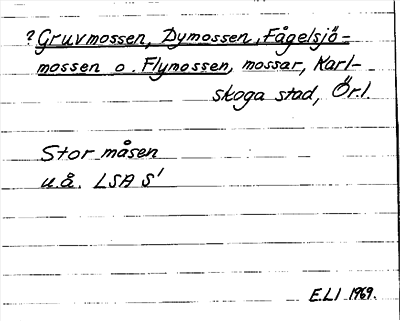 ? Gruvmossen, Dymossen, Fågelsjö-
mossen o. Flymossen, mossar, Karl-
skoga stad, Ör.l.
Stor måsen
u.å. LSA S'
E.L.I 1969.